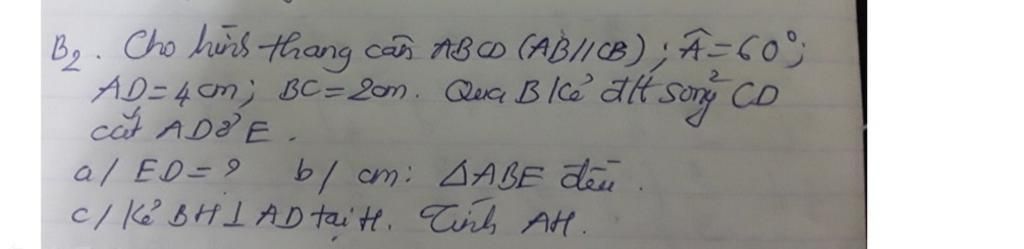 B₂. Cho hình thang cân ABCD (AB//CB); Â=60°;
AD=4cm; BC=2cm. Qua B kẻ đ/t song² CD
cắt AD ở E.
a/ ED=? b/ cm: ΔABE đều.
c/ Kẻ BH⊥AD tại H. Tính AH.